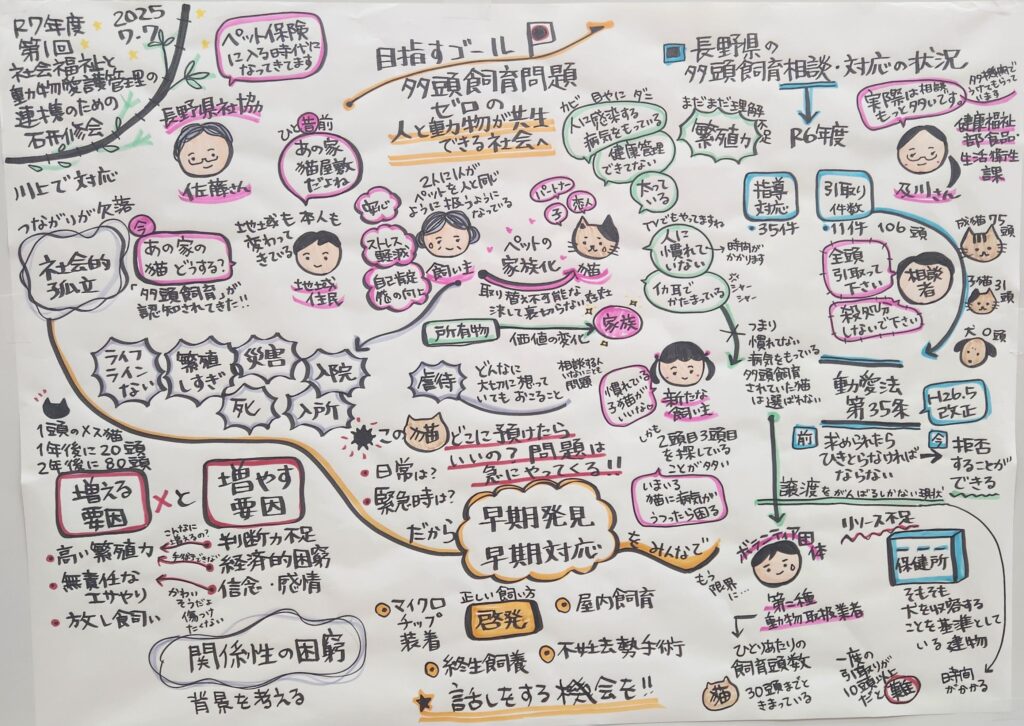 R7年度
第1回
2025
7.7
社会福祉と
動物愛護管理の
連携のための
研修会
ペット保険
に入る時代に
なってきてます
長野県社協
佐藤さん
川上で対応
つながりが欠落
社会的
孤立
今
あの家の
猫どうする?
「多頭飼育」が
認知されてきた!!
ひと昔前
あの家
猫屋敷
だよね
地域も本人も
変わって
きている
地域
住民
目指すゴール
多頭飼育問題
ゼロの
人と動物が共生
できる社会へ
安心
ストレス
軽減
自己肯定
感の向上
2人に1人が
ペットを人と同じ
ように扱うように
なっている
飼い主
パートナー
子
恋人
ペットの
家族化
猫
取り替え不可能な
決して裏切らない存在
所有物
価値の変化
家族
カビ
目やに
ダニ
人に感染する
病気をもっている
健康管理
できてない
太って
いる
まだまだ理解
不足
繁殖力
TVでもやってますね
人に
慣れて
いない
時間が
かかります
イカ耳で
かたまっている
シャー
シャー
つまり
慣れてない
病気をもっている
多頭飼育
されていた猫
は選ばれない
長野県の
多頭飼育相談・対応の状況
R6年度
実際は相談
もっと多いです。
タ機関で
うけてもらって
います
健康福祉
部食品
生活衛生
課
及川さん
指導
対応
・35件
引取り
件数
・11件
106頭
成猫75
頭
子猫31
頭
犬0頭
全頭
引取って
下さい
殺処分
しないで下さい
相談
者
動愛法
第35条
H26.5
改正
前
求められたら
ひきとらなければ
ならない
今
拒否
することが
できる
譲渡をがんばるしかない現状
ライフ
ライン
ない
繁殖
しすぎ
災害
入院
死
入所
虐待
どんなに
大切に想って
いてもおこること
相談する人
いないことも
問題
1頭のメス猫
1年後に20頭
2年後に80頭
増える
要因
×と
増やす
要因
・高い繁殖力
・無責任な
エサやり
・放し飼い
判断力不足
経済的困窮
信念・感情
こんなに
増えるの?
かわい
そうだよ
傷つけ
たくない
関係性の困窮
背景を考える
この猫どこに預けたら
いいの?問題は
急にやってくる!!
・日常は?
・緊急時は?
だから
早期発見
早期対応
をみんなで
慣れている
子猫が
いいな
新たな
飼い主
しかも
2頭目3頭目
を探している
ことが多い
いまいる
猫に病気が
うつったら困る
マイクロ
チップ
装着
正しい飼い方
啓発
屋内飼育
終生飼養
不妊去勢手術
話しをする機会を!!
ボランティア団体
もう
限界に…
第二種
動物取扱業者
ひとりあたりの
飼育頭数
猫
30頭までと
きまっている
リソース不足
保健所
そもそも
犬を収容する
ことを基準として
いる建物
一度の
引取りが
10頭以上
だと
難
時間
がかかる